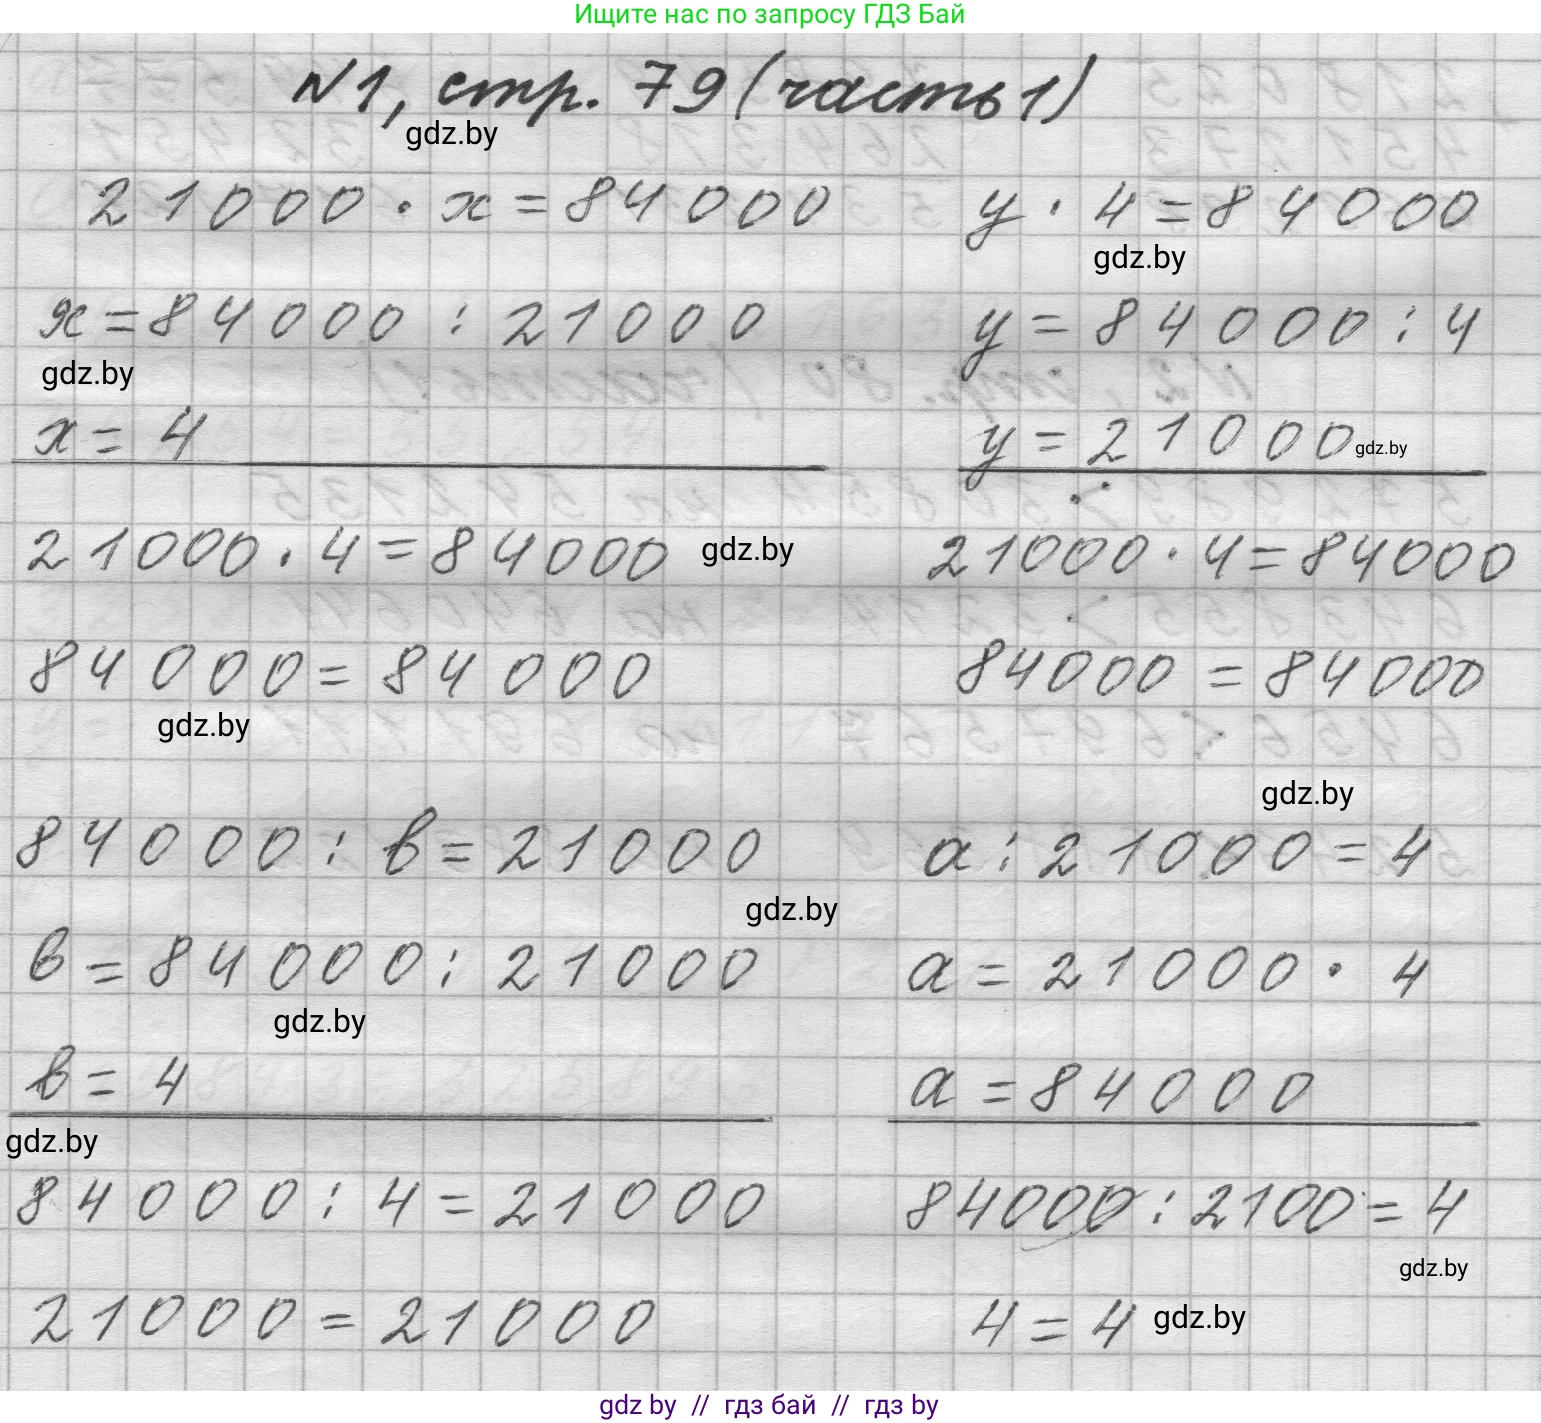 Ищите нас по запросу ГДЗ Бай
№1, стр. 79 (часть 1)
gdz.by
21000 · x = 84000 y · 4 = 84000
gdz.by
x = 84000 : 21000 y = 84000 : 4
gdz.by
x = 4 y = 21000 gdz.by
21000 · 4 = 84000 gdz.by 21000 · 4 = 84000
84000 = 84000 84000 = 84000
gdz.by
gdz.by
84000 : в = 21000 a : 21000 = 4
gdz.by
в = 84000 : 21000 a = 21000 · 4
gdz.by
в = 4 a = 84000
gdz.by
84000 : 4 = 21000 84000 : 2100 = 4
gdz.by
21000 = 21000 4 = 4 gdz.by
gdz by // гдз бай // гдз by